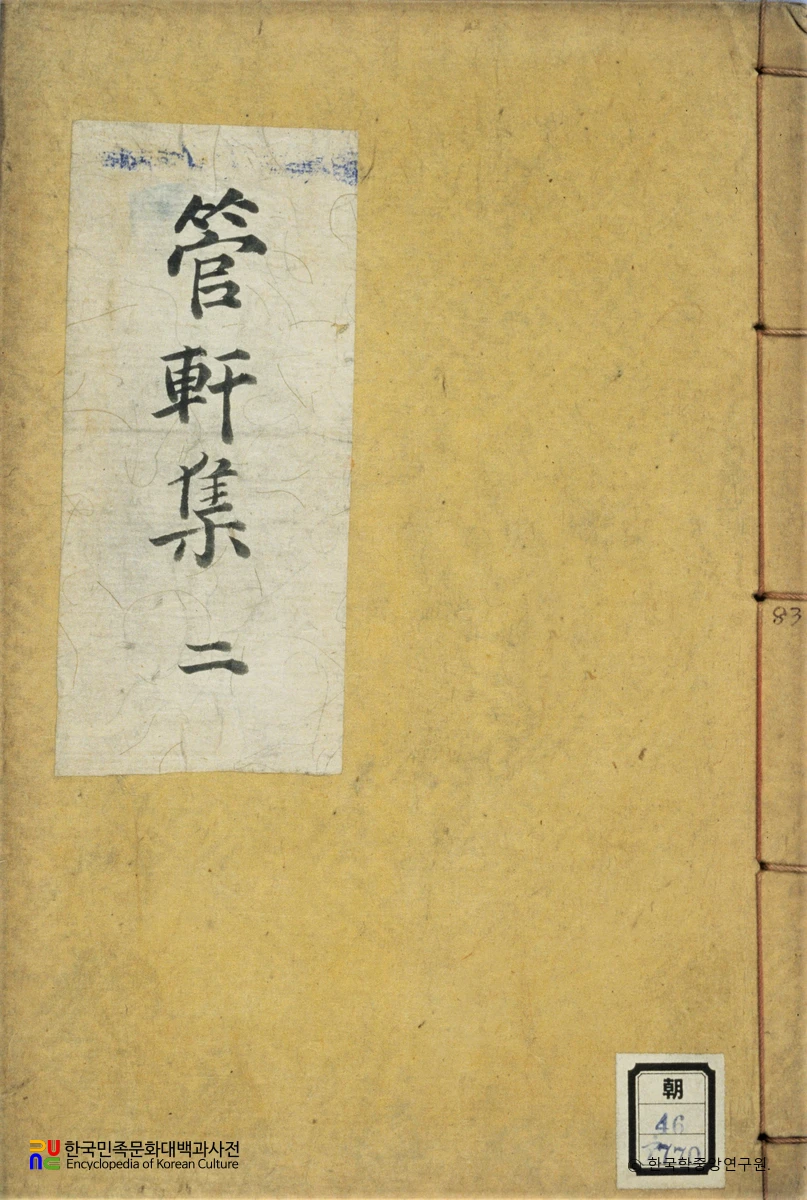 管軒集 二
83
朝
46
한국민족문화대백과사전
Encyclopedia of Korean Culture
한국학중앙연구원.